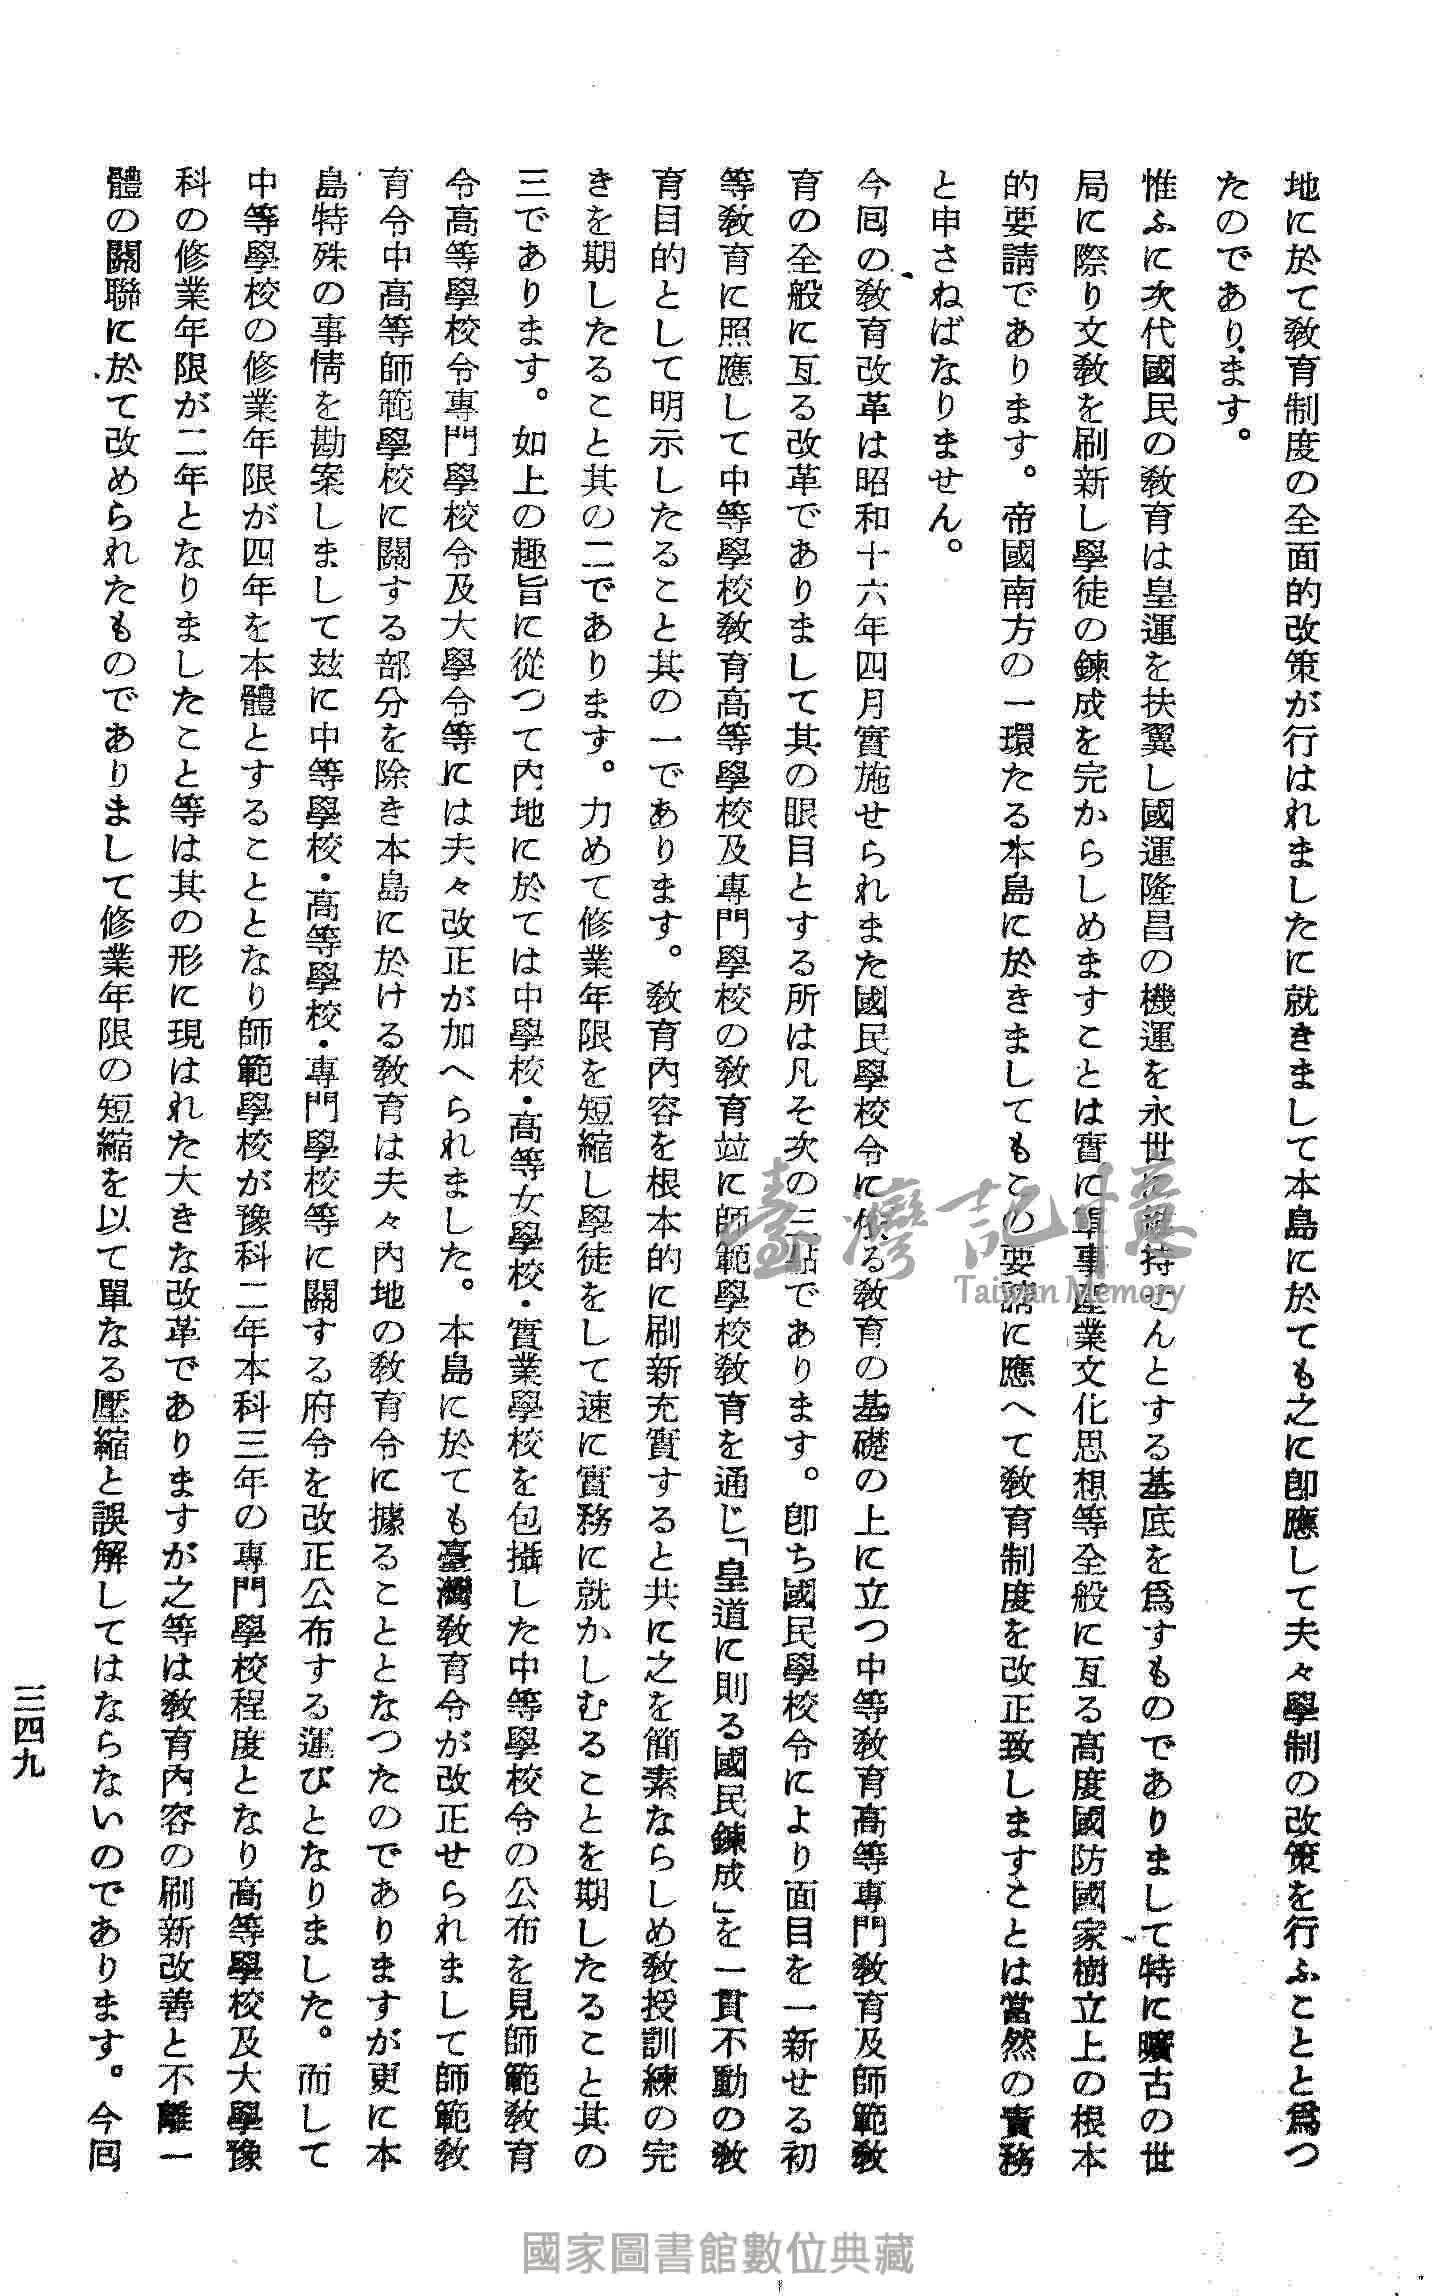 地に於て敎育制度の全面的改策が行はれましたに就きまして本島に於ても之に卽應して夫々學制の改策を行ふことと爲つ
たのであります。
惟ふに次代國民の敎育は皇運を扶翼し國運隆昌の機運を永世に持せんとする基底を爲すものでありまして特に曠古の世
局に際り文敎を刷新し學徒の鍊成を完からしめますことは實に軍事產業文化思想等全般に亙る高度國防國家樹立上の根本
的要請であります。帝國南方の一環たる本島に於きましてもこの要請に應へて敎育制度を改正致しますことは當然の責務
と申さねばなりません。
今回の敎育改革は昭和十六年四月實施せられまた國民學校令に依る敎育の基礎の上に立つ中等敎育高等專門敎育及師範敎
育の全般に亙る改革でありまして其の眼目とする所は凡そ次の三點であります。卽ち國民學校令により面目を一新せる初
等敎育に照應して中等學校敎育高等學校及專門學校の敎育竝に師範學校敎育を通じ「皇道に則る國民鍊成」を一貫不動の敎
育目的として明示したること其の一であります。敎育內容を根本的に刷新充實すると共に之を簡素ならしめ敎授訓練の完
きを期したること其の二であります。力めて修業年限を短縮し學徒をして速に實務に就かしむることを期したること其の
三であります。如上の趣旨に從つて內地に於ては中學校・高等女學校・實業學校を包攝した中等學校令の公布を見師範敎育
令高等學校令專門學校令及大學令等には夫々改正が加へられました。本島に於ても臺灣敎育令が改正せられまして師範敎
育令中高等師範學校に關する部分を除き本島に於ける敎育は夫々內地の敎育令に據ることとなつたのでありますが更に本
島特殊の事情を勘案しまして玆に中等學校・高等學校・專門學校等に關する府令を改正公布する運びとなりました。而して
中等學校の修業年限が四年を本體とすることとなり師範學校が豫科二年本科三年の專門學校程度となり高等學校及大學豫
科の修業年限が二年となりましたこと等は其の形に現はれた大きな改革でありますが之等は敎育內容の刷新改善と不離一
體の關聯に於て改められたものでありまして修業年限の短縮を以て單なる壓縮と誤解してはならないのであります。今回
三四九
臺灣記憶
Taiwan Memory
國家圖書館數位典藏